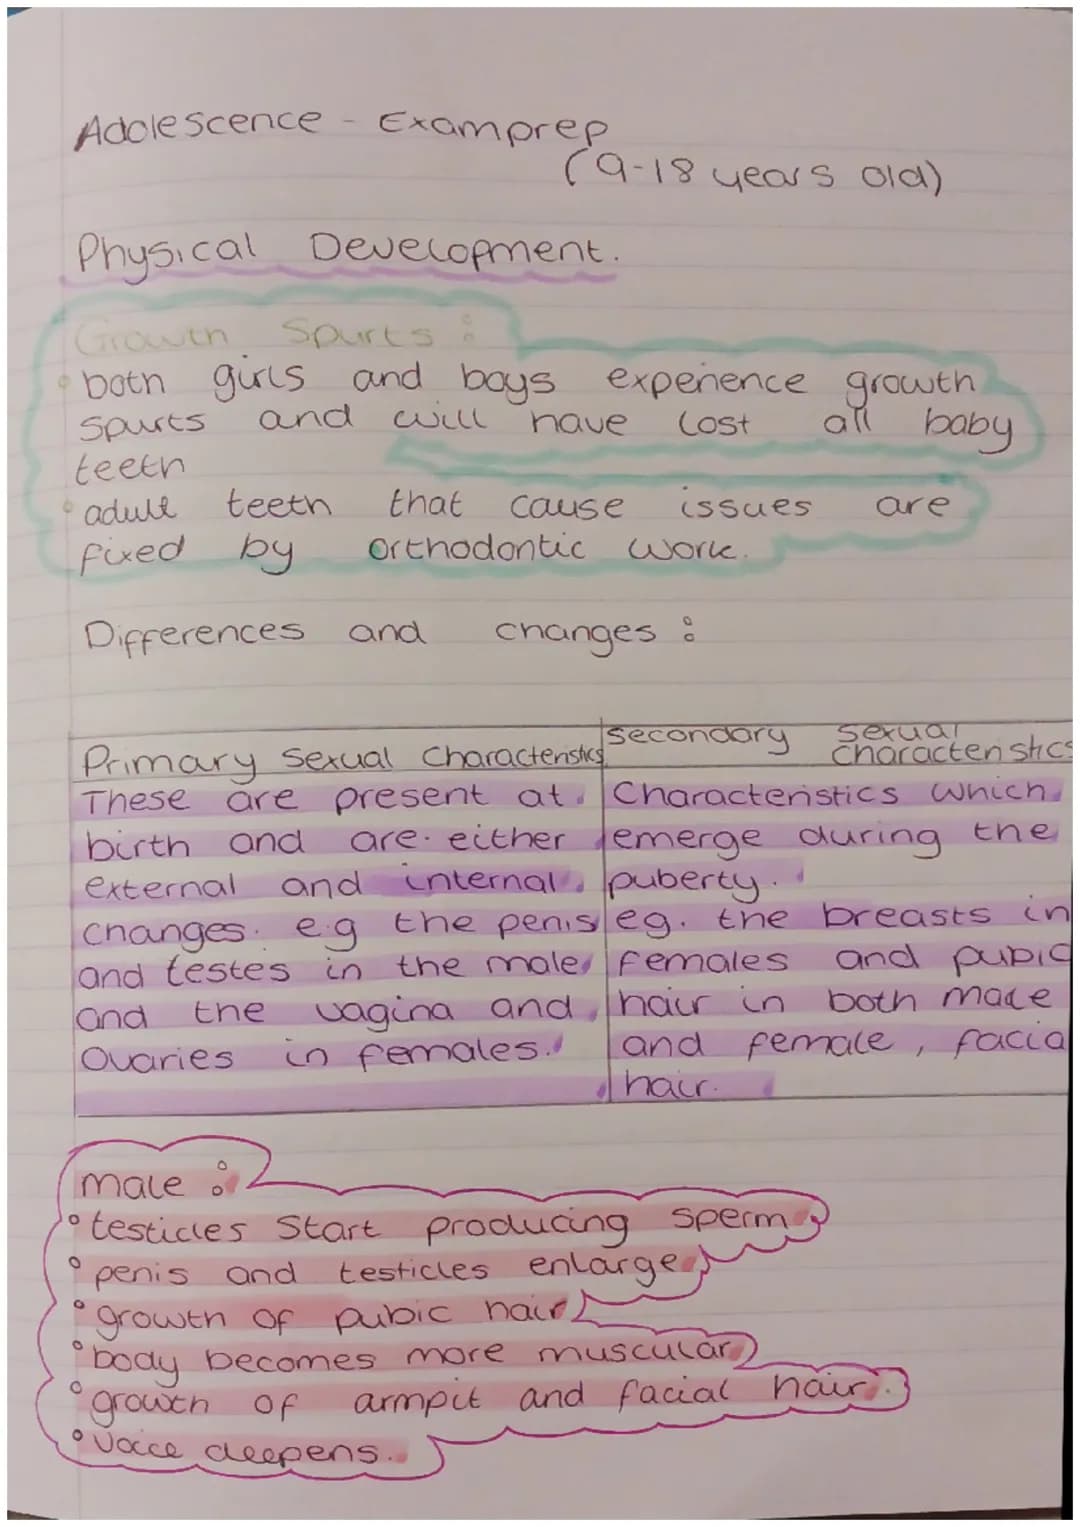 Adolescence - Examprep
(9-18 years old)
Physical Development.
Growth Spurts:
• both girls and boys experience growth
spurts and will have lost all baby
teeth
• adult teeth that cause issues are
fixed by orthodontic work.
Differences and changes:
Primary Sexual Characteristics
These are present at
birth and are either
external and internal
changes. e.g the penis
and testes in the male
and the vagina and
ovaries in females.
Secondary Sexual
characteristics
Characteristics which
emerge during the
puberty.
eg. the breasts in
females and pubic
hair in both male
and female, facia
hair.
male:
• testicles start producing sperm
• penis and testicles enlarge
• growth of pubic hair
• body becomes more muscular
• growth of armpit and facial hair.
• voice deepens.